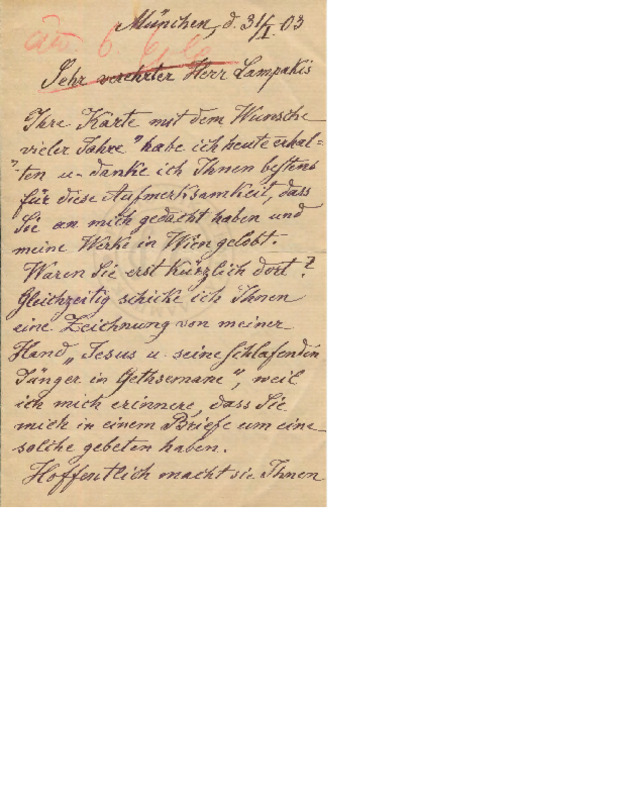 München, d. 31/I. 03
Sehr verehrter Herr Lampakis
Ihre Karte mit dem Wunsche
"vieler Jahre" habe ich heute erhal=
ten u. danke ich Ihnen bestens
für diese Aufmerksamkeit, dass
Sie an mich gedacht haben und
meine Werke in Wien gelobt.
Waren Sie erst kürzlich dort?
Gleichzeitig schicke ich Ihnen
eine Zeichnung von meiner
Hand „Jesus u. seine schlafenden
Jünger in Gethsemane", weil
ich mich erinnere, dass Sie
mich in einem Briefe um eine
solche gebeten haben.
Hoffentlich macht sie Ihnen